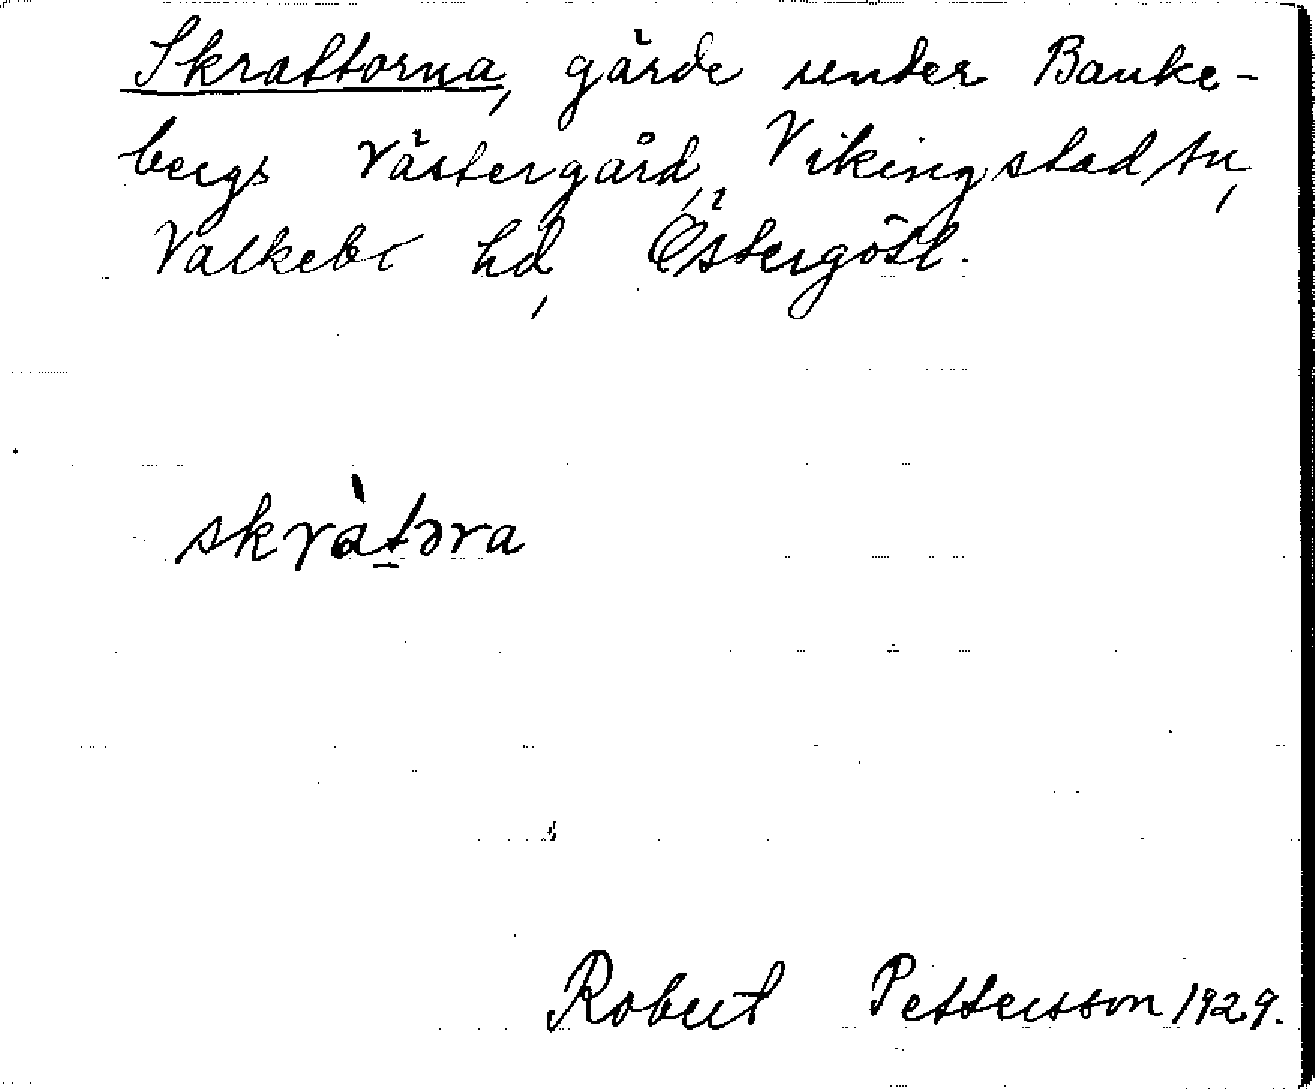 Skrattorna, gärde under Banke-
bergs Västergård, Vikingstad sn,
Valkebo hd, Östergötl.
skràtəra
Robert Pettersson 1929.